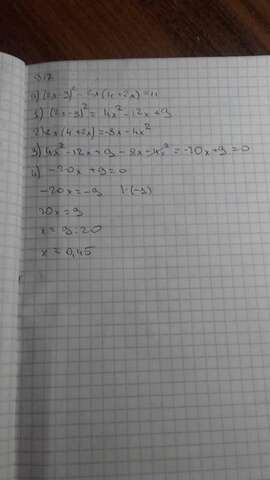 а) (2x-3)² - 2x(4+2x)=11
1) (2x-3)² = 4x² - 12x + 9
2) 2x(4+2x)=-8x-4x²
3) 4x²-12x+9-8x-4x²=-20x+9=0
4) -20x+9=0
-20x=-9 |·(-1)
20x=9
x = 9:20
x = 0,45